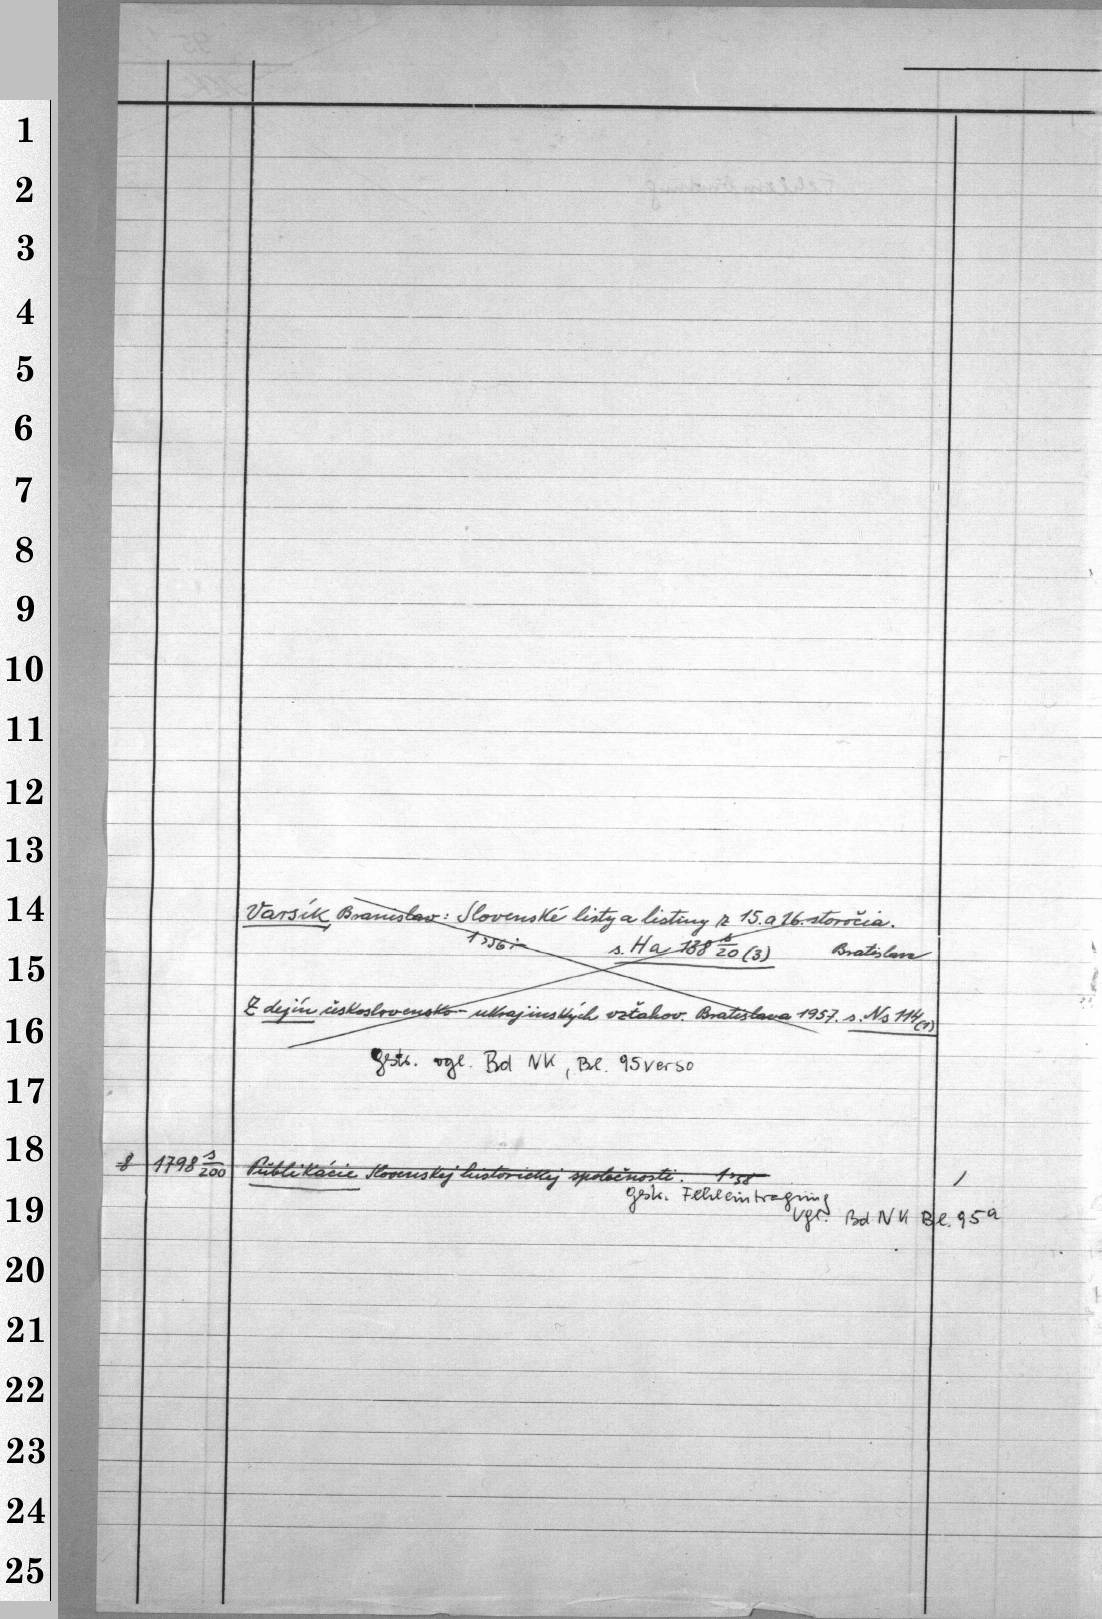 1
2
3
4
5
6
7
8
9
10
11
12
13
14
15
16
17
18
19
20
21
22
23
24
25
Varsík Branislav: Slovenské listy a listiny z 15. a 16. storočia.
s. Ha 138 s/20 (3) Bratislava
Z dejín československo-ukrajinských vzťahov. Bratislava 1957. s. Ns 114 (1)
gestr. vgl. Bd NK, Bl. 95 verso
8 1798 s/200 Publikácie Slovenskej historickej spoločnosti.
gestr. Fehleintragung
vgl. Bd NK Bl. 95a